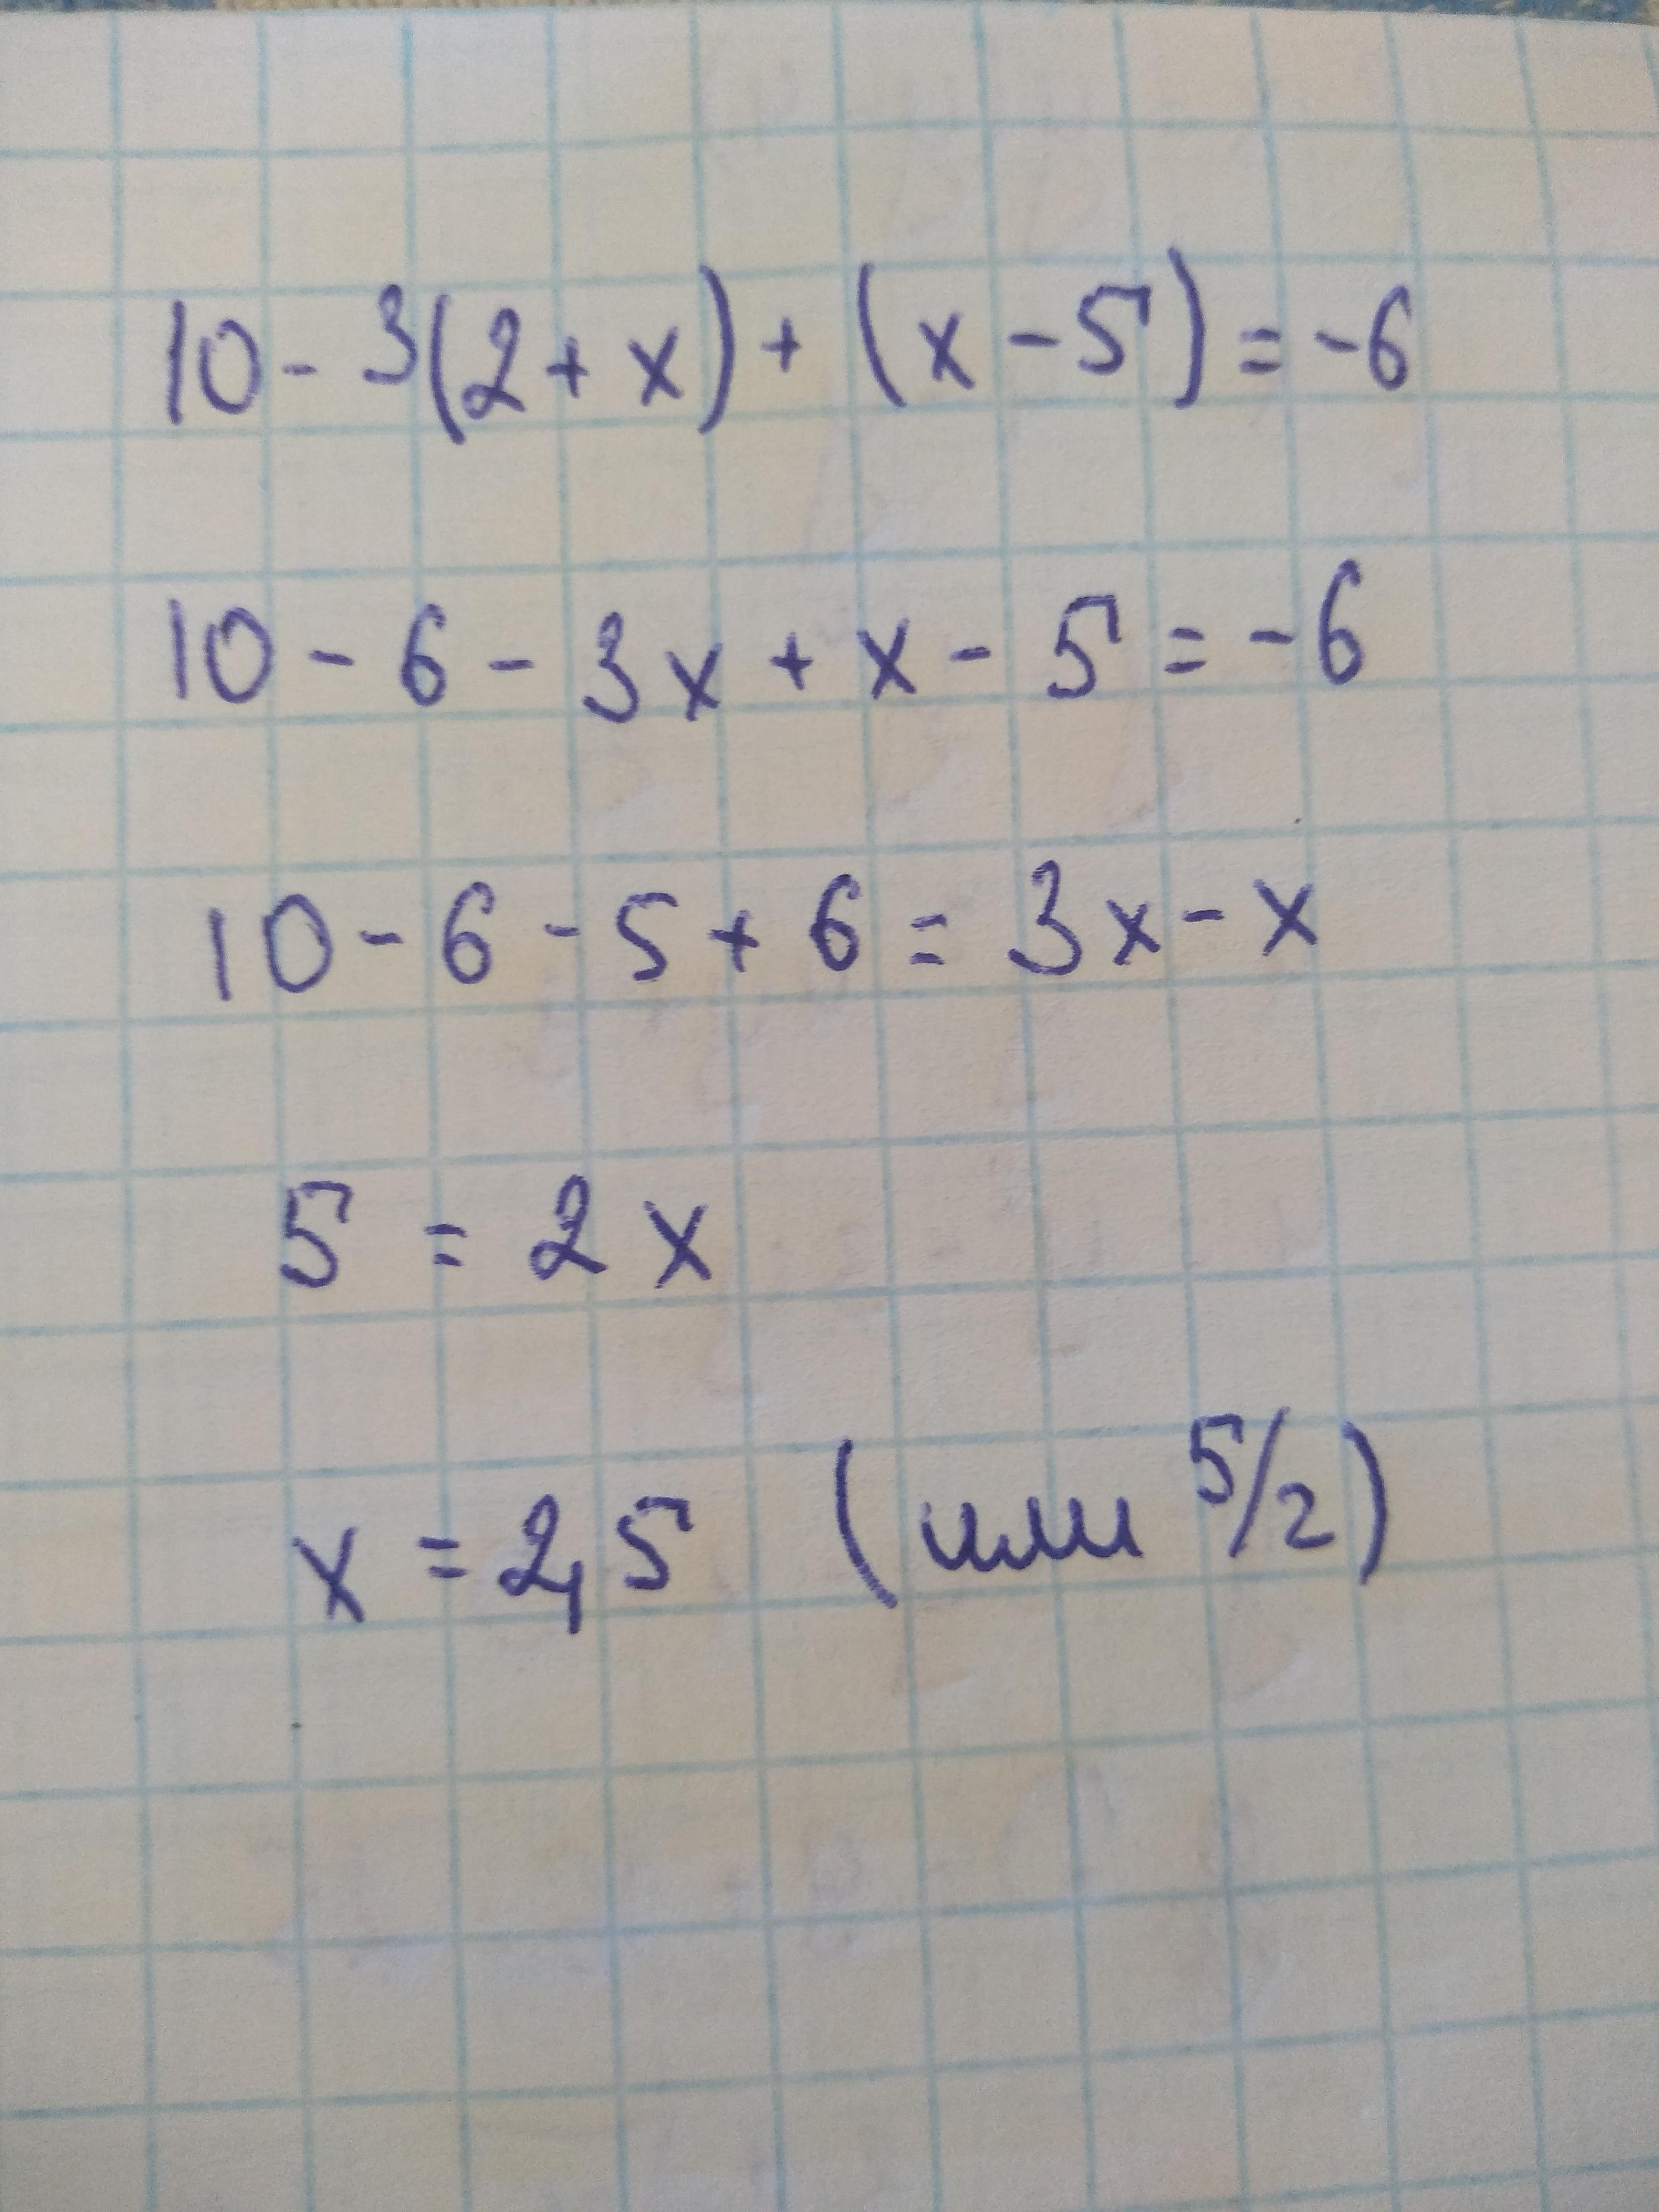 10 - 3(2 + x) + (x - 5) = -6
10 - 6 - 3x + x - 5 = -6
10 - 6 - 5 + 6 = 3x - x
5 = 2x
x = 2,5 (или 5/2)